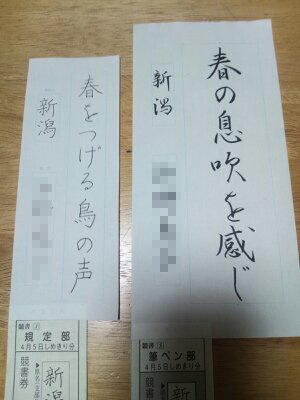 春の息吹を感じ
新潟
春をつげる鳥の声
新潟
競書 2
規定部
4月5日しめきり分
競書券
新潟
競書 3
筆ペン部
4月5日しめきり分
競書券
新